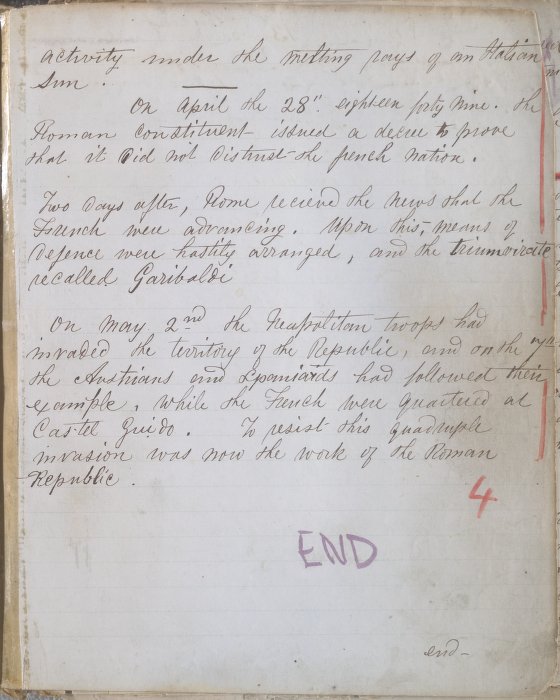 activity under the melting rays of an Italian
Sun.
On April the 28". eighteen forty nine. the
Roman constituent issued a decree to prove
that it did not distrust the french nation.
Two days after, Rome recieved the news that the
French were advancing. Upon this, means of
defence were hastily arranged, and the triumvirate
recalled Garibaldi
On May 2nd the Neapolitan troops had
invaded the territory of the Republic, and on the 7th
the Austrians and Spaniards had followed their
example, while the French were quartered at
Castel Guido. To resist this quadruple
invasion was now the work of the Roman
Republic.
4
END
end-